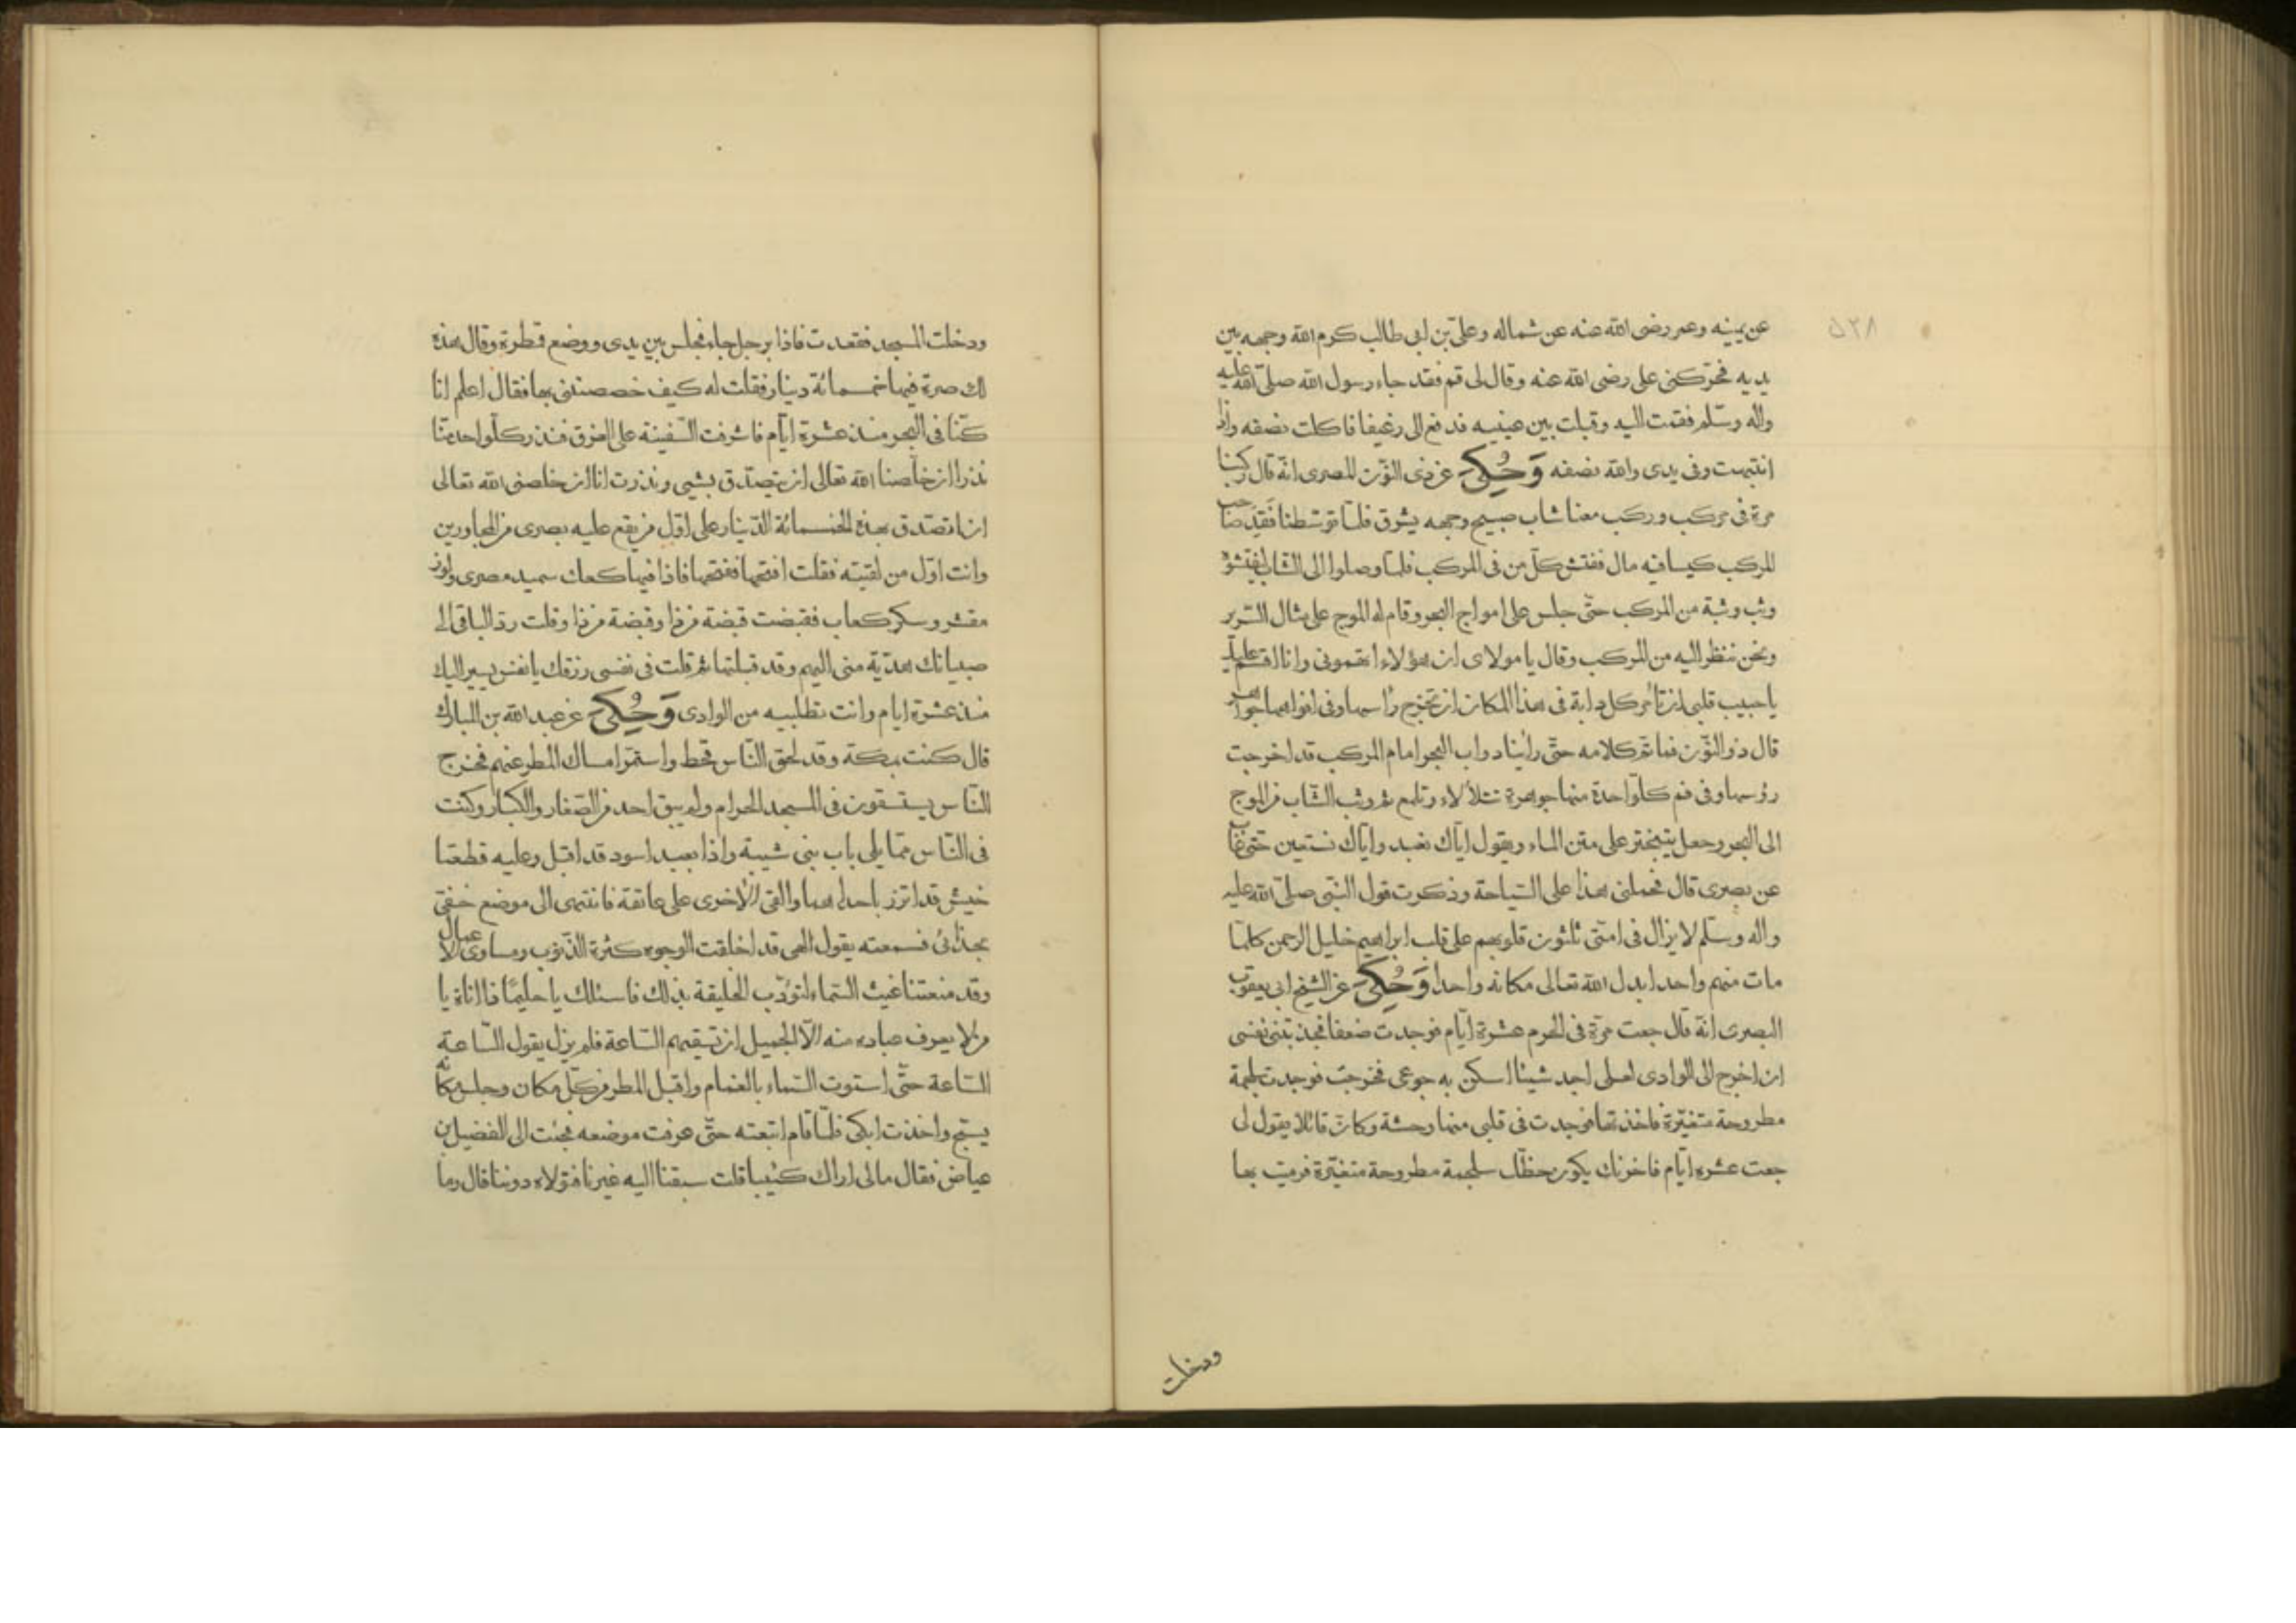 ٥٢٨
عن يمينه وعمر رضى الله عنه عن شماله وعلىّ بن ابى طالب كرم الله وجهه بين
يديه فحرّكنى على رضى الله عنه وقال لى قم فقد جاء رسول الله صلىّ الله عليه
واله وسلّم فقمت اليه وقبلت بين عينيه فدفع الى رغيفا فاكلت نصفه واذا
انتبهت وفى يدى والله نصفه وَحُكِىَ عن ذى النوّن المصرى انّه قال ركبنا
مرة فى مركب وركب معنا شاب صبيح وجهه يشرق فلمّا توسّطنا فَقَدَ صاحب
المركب كيسا فيه مال ففتش كلّ من فى المركب فلمّا وصلوا الى الشّاب ليفتّشوُ
وثب وثبة من المركب حتّى جلس على امواج البحر وقام له الموج على مثال السّرير
ونحن ننظر اليه من المركب وقال يا مولاى ان هؤلاء اتهمونى وانا اقسم عليك
يا حبيب قلبى ان تأمر كل دابة فى هذا المكان ان تخرج رأسها وفى افواهها جواهر
قال ذو النوّن فما تمّ كلامه حتّى رأينا دواب البحر امام المركب قد اخرجت
رؤسها وفى فم كلّ واحدة منها جوهرة تتلألاء وتلمع ثم وثب الشّاب من الموج
الى البحر وجعل يتبختر على متن الماء ويقول ايّاك نعبد وايّاك نستعين حتّى غاب
عن بصرى قال فحملنى هذا على السّياحة وذكرت قول النّبى صلىّ الله عليه
واله وسلّم لا يزال فى امتّى ثلثون قلوبهم على قلب ابراهيم خليل الرحمن كلمّا
مات منهم واحد ابدل الله تعالى مكانه واحدا وَحُكِىَ عن الشّيخ ابى يعقوب
البصرى انّه قال جعت مرّة فى الحرم عشرة ايّام فوجدت ضعفا فجذبتنى نفسى
ان اخرج الى الوادى لعلى اجد شيئا اسكن به جوعى فخرجت فوجدت سلجمة
مطروحة متغيّرة فاخذتها فوجدت فى قلبى منها وحشة وكانّ قائلا يقول لى
جعت عشره ايّام فاخرتك يكون حظّك سلجمة مطروحة متغيّرة فرميت بها
ودخلت
ودخلت المسجد فقعدت فاذا برجل جاء فجلس بين يدى ووضع قمطرة وقال هذه
لك صرة فيها خمسمائة دينار فقلت له كيف خصصتنى بها فقال اعلم انا
كنّا فى البحر منذ عشرة ايّام فاشرفت السّفينة على الغرق فنذر كلّ واحد منّا
نذرا ان خلّصنا الله تعالى ان يتصدّق بشيى ونذرت انا ان خلصنى الله تعالى
ان اتصدّق بهذه الخمسمائة الدّينار على اوّل من يقع عليه بصرى من المجاورين
وانت اوّل من لقيته فقلت افتحها ففتحها فاذا فيها كعك سميد مصرى ولوز
مقشر وسكر كعاب فقبضت قبضة من ذا وقبضة من ذا وقلت ردّ الباقى الى
صبيانك هديّة منى اليهم وقد قبلتها ثم قلت فى نفسى رزقك يا نفس يسير اليك
منذ عشرة ايام وانت تطلبيه من الوادى وَحُكِىَ عن عبد الله بن المبارك
قال كنت بمكة وقد لحق النّاس قحط واستمرّ امساك المطر عنهم فخرج
النّاس يستسقون فى المسجد الحرام ولم يبق احد من الصّغار والكبار وكنت
فى النّاس ممّا يلى باب بنى شيبة واذا بعبد اسود قد اقبل وعليه قطعتا
خيش قد اتزر باحداهما والقى الأخرى على عاتقه فانتهى الى موضع خفىّ
بحذائى فسمعته يقول الهى قد اخلقت الوجوه كثرة الذّنوب ومساوى الاعمال
وقد منعتنا غيث السّماء لتؤدّب الخليقة بذلك فاسئلك يا حليمًا ذا اناة يا
من لا يعرف عباده منه الّا الجميل ان تسقيهم السّاعة فلم يزل يقول السّاعة
السّاعة حتّى استوت السّماء بالغمام واقبل المطر من كلّ مكان وجلس مكانه
يسبّح واخذت ابكى فلمّا قام اتبعته حتّى عرفت موضعه فجئت الى الفضيل بن
عياض فقال مالى اراك كئيبا قلت سبقنا اليه غيرنا فتولاه دوننا قال وما